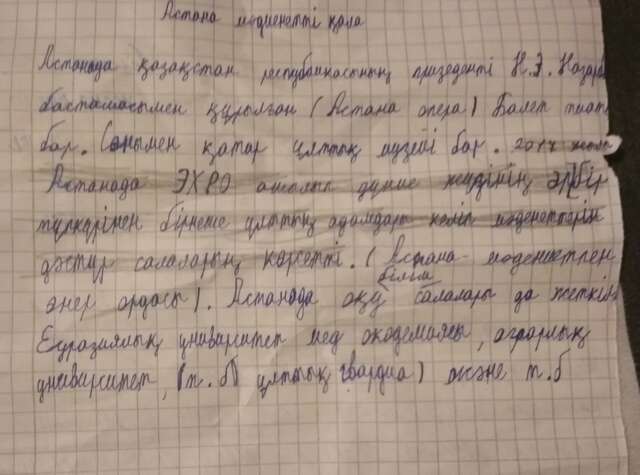 Астана мәдениетті қала
Астанада қазақстан республикастның призеденті Н.Ә. Назар
басташасымен құрылған (Астана опера) Балет театр
бар. Сонымен қатар ұлттық музейі бар. 2017 жылы
Астанада ЭХРО ашылып дүние жүзінің әр бір
түпкірінен бірнеше ұлттың адамдары келіп мәдениеттерін
дәстүр салаларын көрсетті. (Астана мәдениетпен
өнер ордасы). Астанада оқу білім салалары да жеткіл
Еуразиялық университет мед академиясы, аграрлық
университет, (т. б) ұлттық гвардиа) және т.б